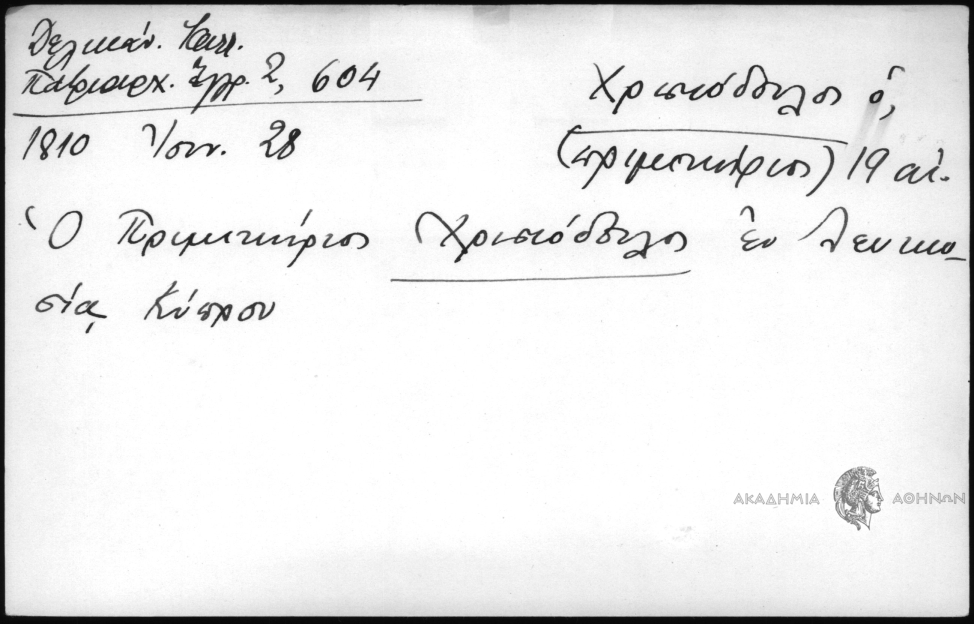 Δελικάν. Καλλ.
Πατριαρχ. Ἔγγρ. 2, 604
1810 Ἰουν. 28
Χριστόδουλος ὁ,
(πριμικήριος) 19 αἰ.
Ὁ Πριμικήριος Χριστόδουλος ἐν Λευκω_
σίᾳ Κύπρου
ΑΚΑΔΗΜΙΑ ΑΘΗΝΩΝ